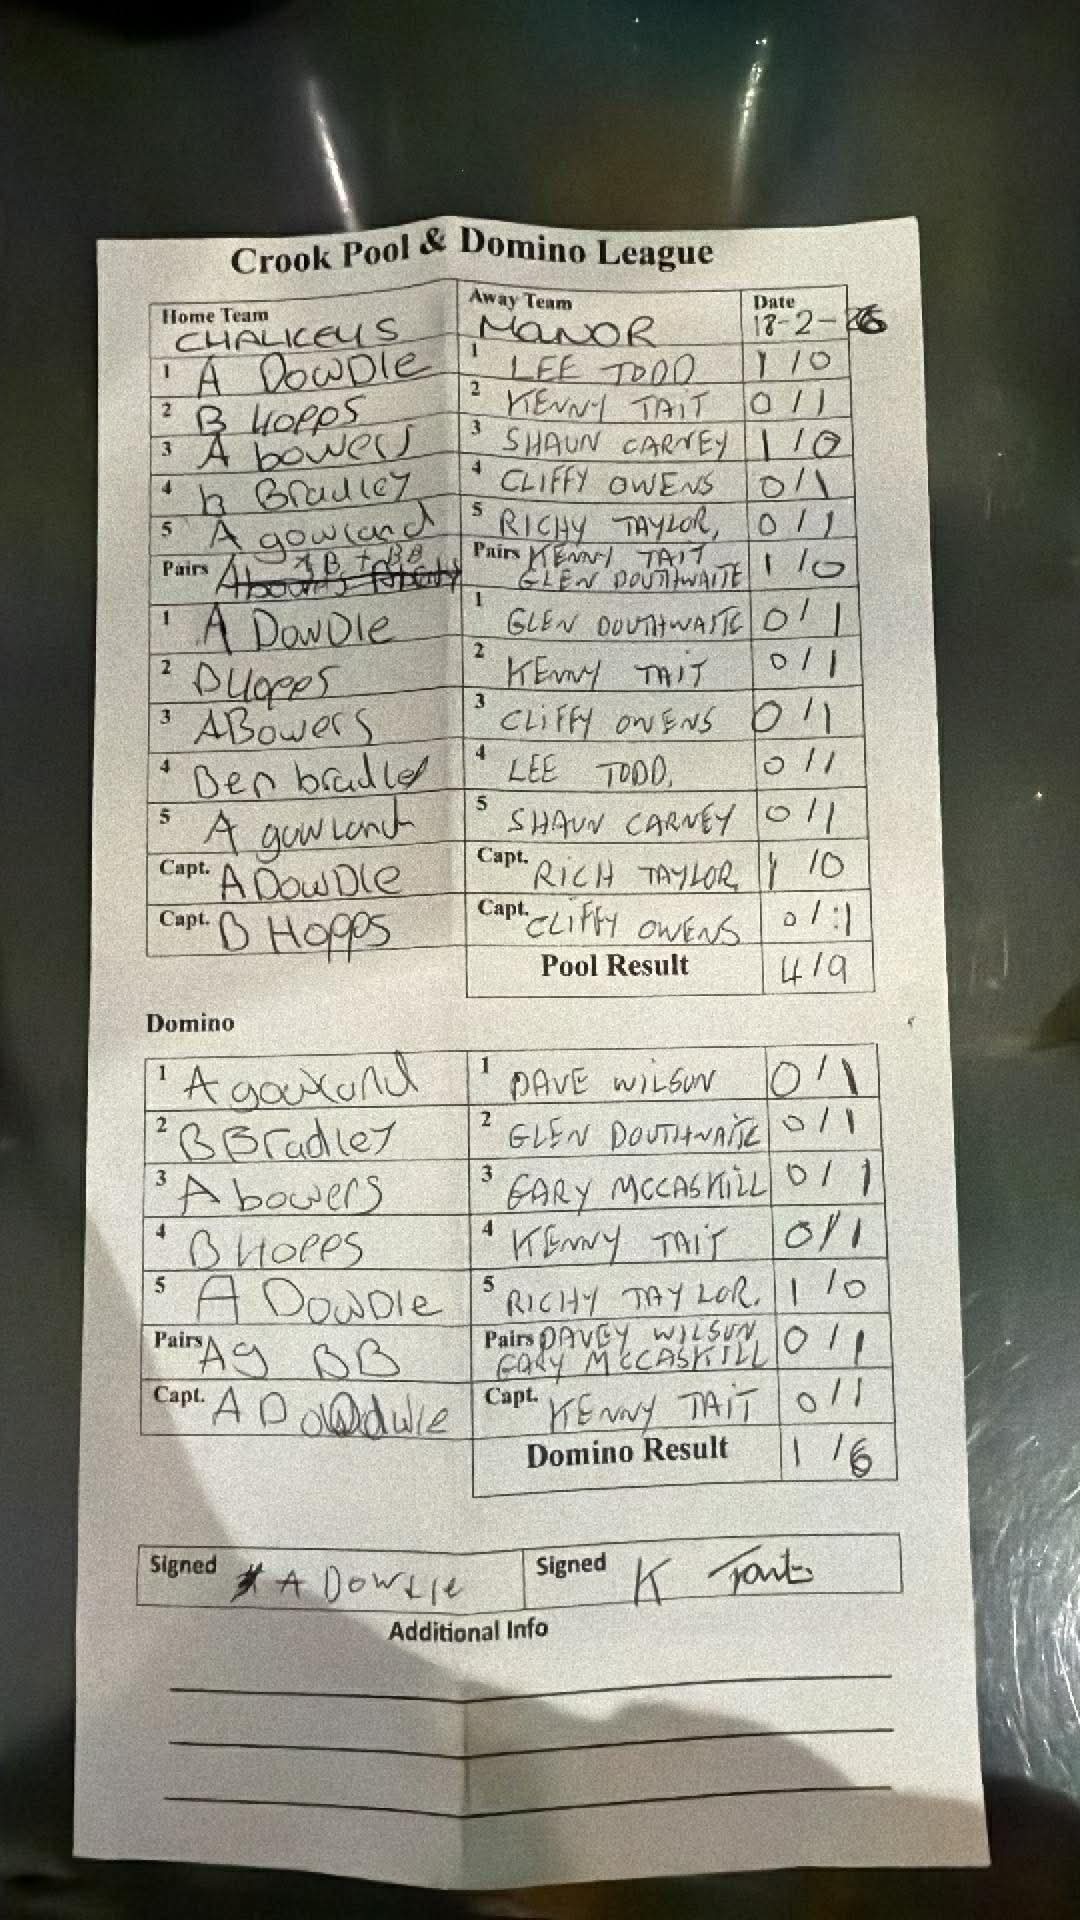 Crook Pool & Domino League
Home Team Away Team Date
CHALKEYS MANOR 18-2-26
1 A DOWDLE 1 LEE TODD 1/0
2 B HOPPS 2 KENNY TAIT 0/1
3 A bowers 3 SHAUN CARNEY 1/0
4 b Bradley 4 CLIFFY OWENS 0/1
5 A gowland 5 RICHY TAYLOR, 0/1
Pairs AB + BB Pairs KENNY TAIT 1/0
GLEN DOUTHWAITE
1 A DOWDLE 1 GLEN DOUTHWAITE 0/1
2 B HOPPS 2 KENNY TAIT 0/1
3 A BOWERS 3 CLIFFY OWENS 0/1
4 Ben bradley 4 LEE TODD, 0/1
5 A gowland 5 SHAUN CARNEY 0/1
Capt. A DOWDLE Capt. RICH TAYLOR, 1/0
Capt. B HOPPS Capt. CLIFFY OWENS 0/1
Pool Result 4/9
Domino
1 A gowland 1 DAVE WILSON 0/1
2 B Bradley 2 GLEN DOUTHWAITE 0/1
3 A bowers 3 GARY MCCASKILL 0/1
4 B HOPPS 4 KENNY TAIT 0/1
5 A DOWDLE 5 RICHY TAYLOR. 1/0
Pairs Ag BB Pairs DAVEY WILSON, 0/1
GARY MCCASKILL
Capt. A Capt. KENNY TAIT 0/1
Domino Result 1/6
Signed A DOWDLE Signed K Tait
Additional Info